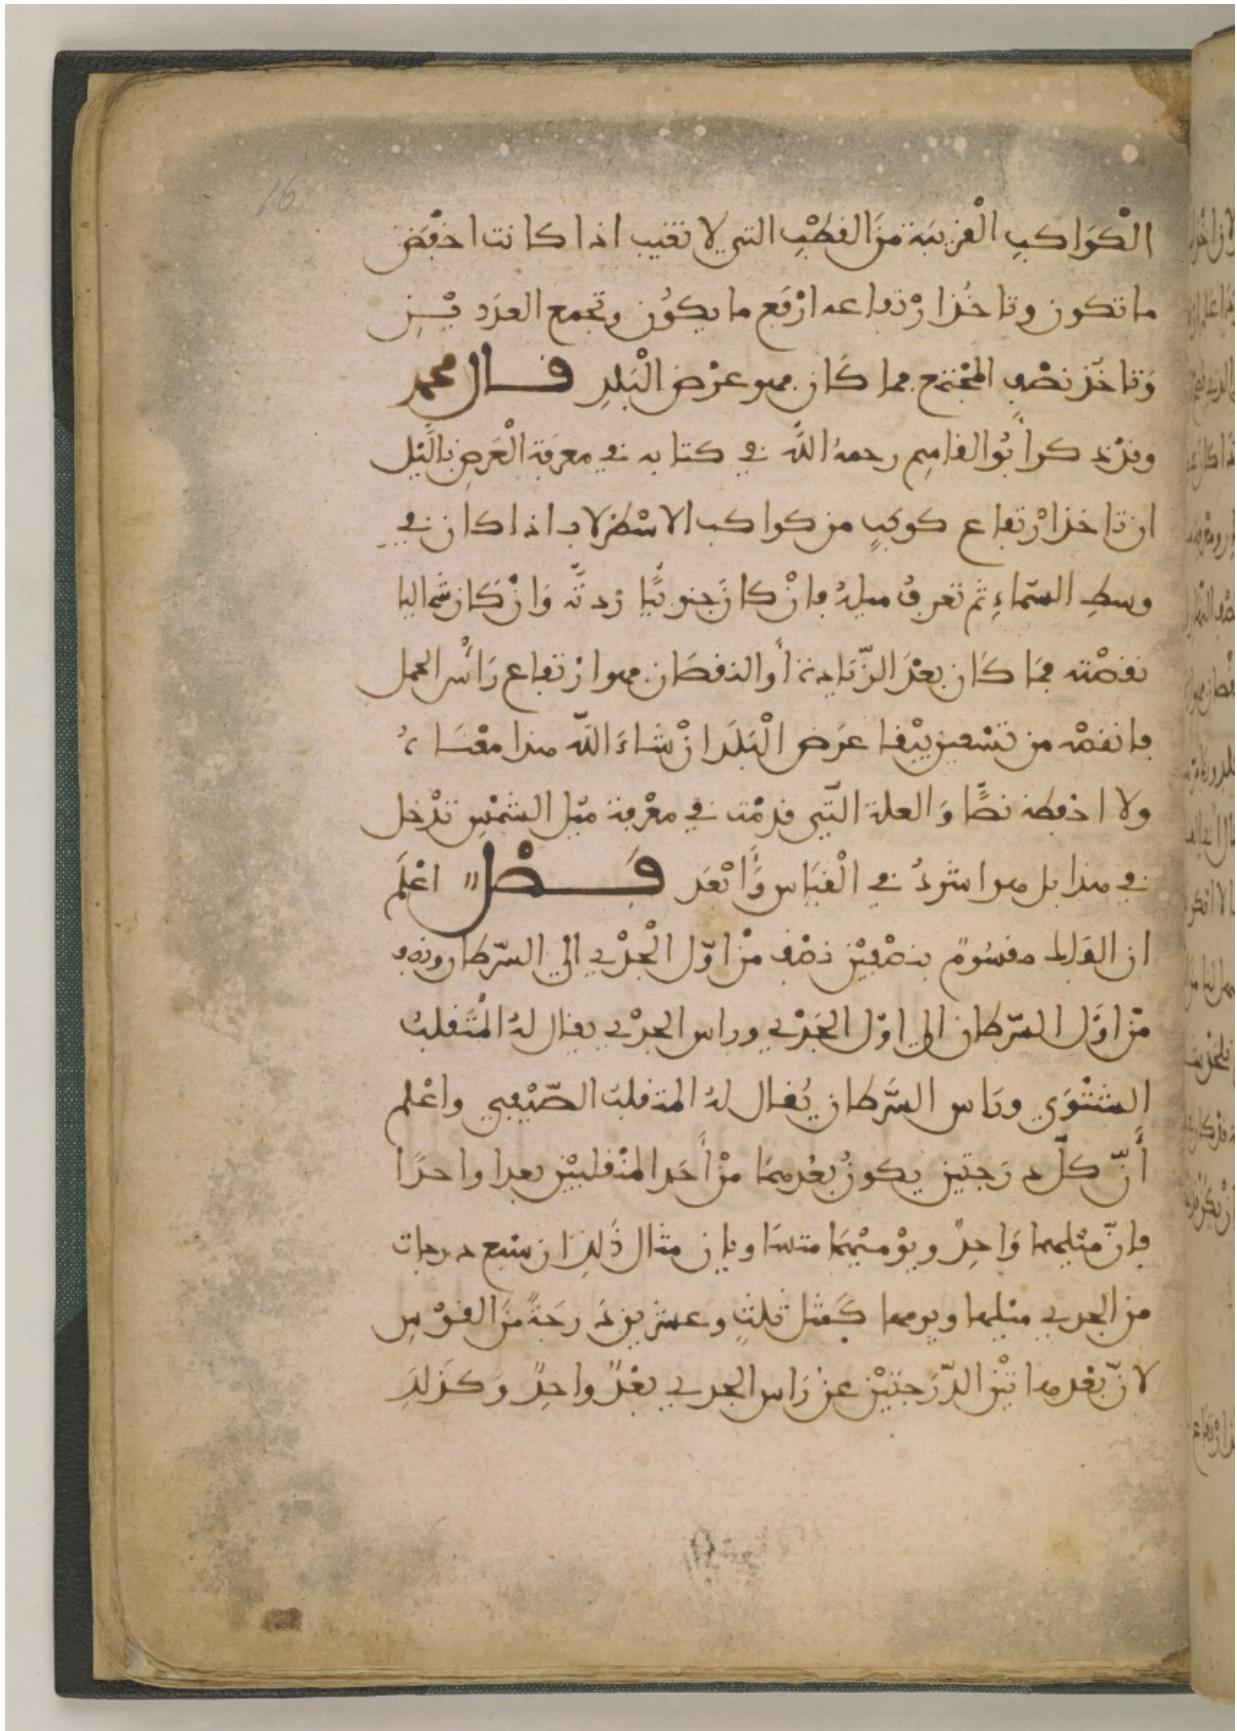 الْكَوَاكبِ الْقريبَة مِنَ القطْبِ التي لا تغيب اذا كانت اخفَض
ما تكون وتاخُذ ارْتفاعه ارْفَع ما يكُون وتجمع العدَد يْن
وَتاخُذ نصْف المجْتمع فما كَان فهو عرْض الْبَلدِ قال محمد
وقدْ ذكر أبُو القاسِم رحمهُ اللَّه في كتابه في معرفة الْعَرضِ بالَّيْل
ان تاخذ ارْتفاع كوكبٍ من كواكب الاسْطرلاب اذا كان في
وسطِ السّماءِ ثم تعرِف ميلهُ فانْ كانَ جنوبيًّا زدتَّه وَانْ كَان شماليا
نقصْته فمَا كَان بعْدَ الزّيَادة أو النقصَان فهو ارْتفاع رَأْس الحمل
فانقصْه من تسْعين يبْقا عرَض الْبَلَد انْ شاءَ اللَّه هذا معْنَاهُ
ولا احْفظه نصًّا وَالعلة الّتي قدمْت في معْرفة ميْل الشمْسِ تدْخل
في هذا بل هو اشدُّ في الْقيَاس وَأَبْعَد فَصْل اعْلَمْ
ان الفَلك مقسُومٌ بنصْفيْن نصْف مِنْ اوّل الْجدْي الي السّرطان ونصف
مِنْ اوَّل السّرطان الي اوّل الجَدْي وراس الجدْي يقال لهُ المُنْقلبُ
الشتْوَي ورَاس السَّرطان يُقال لهُ المنقلبُ الصّيْفِي واعْلم
أَنّ كلّ دَرَجتَين يكونُ بعْدهمَا مِنْ أَحَد المنْقلبيْن بعدا واحدًا
فانّ ميْليهما وَاحدٌ ويوْميْهمَا متساويان مثال ذَلك ان سَبع درجات
من الجدي ميلها ويومها كَمثل ثلثٍ وعشرين دَرجَةً مِنَ القوْسِ
لانّ بعْد هاتيْن الدّرَجتيْن عن رَاس الجدي بعْدٌ واحِدٌ وَكذَلك